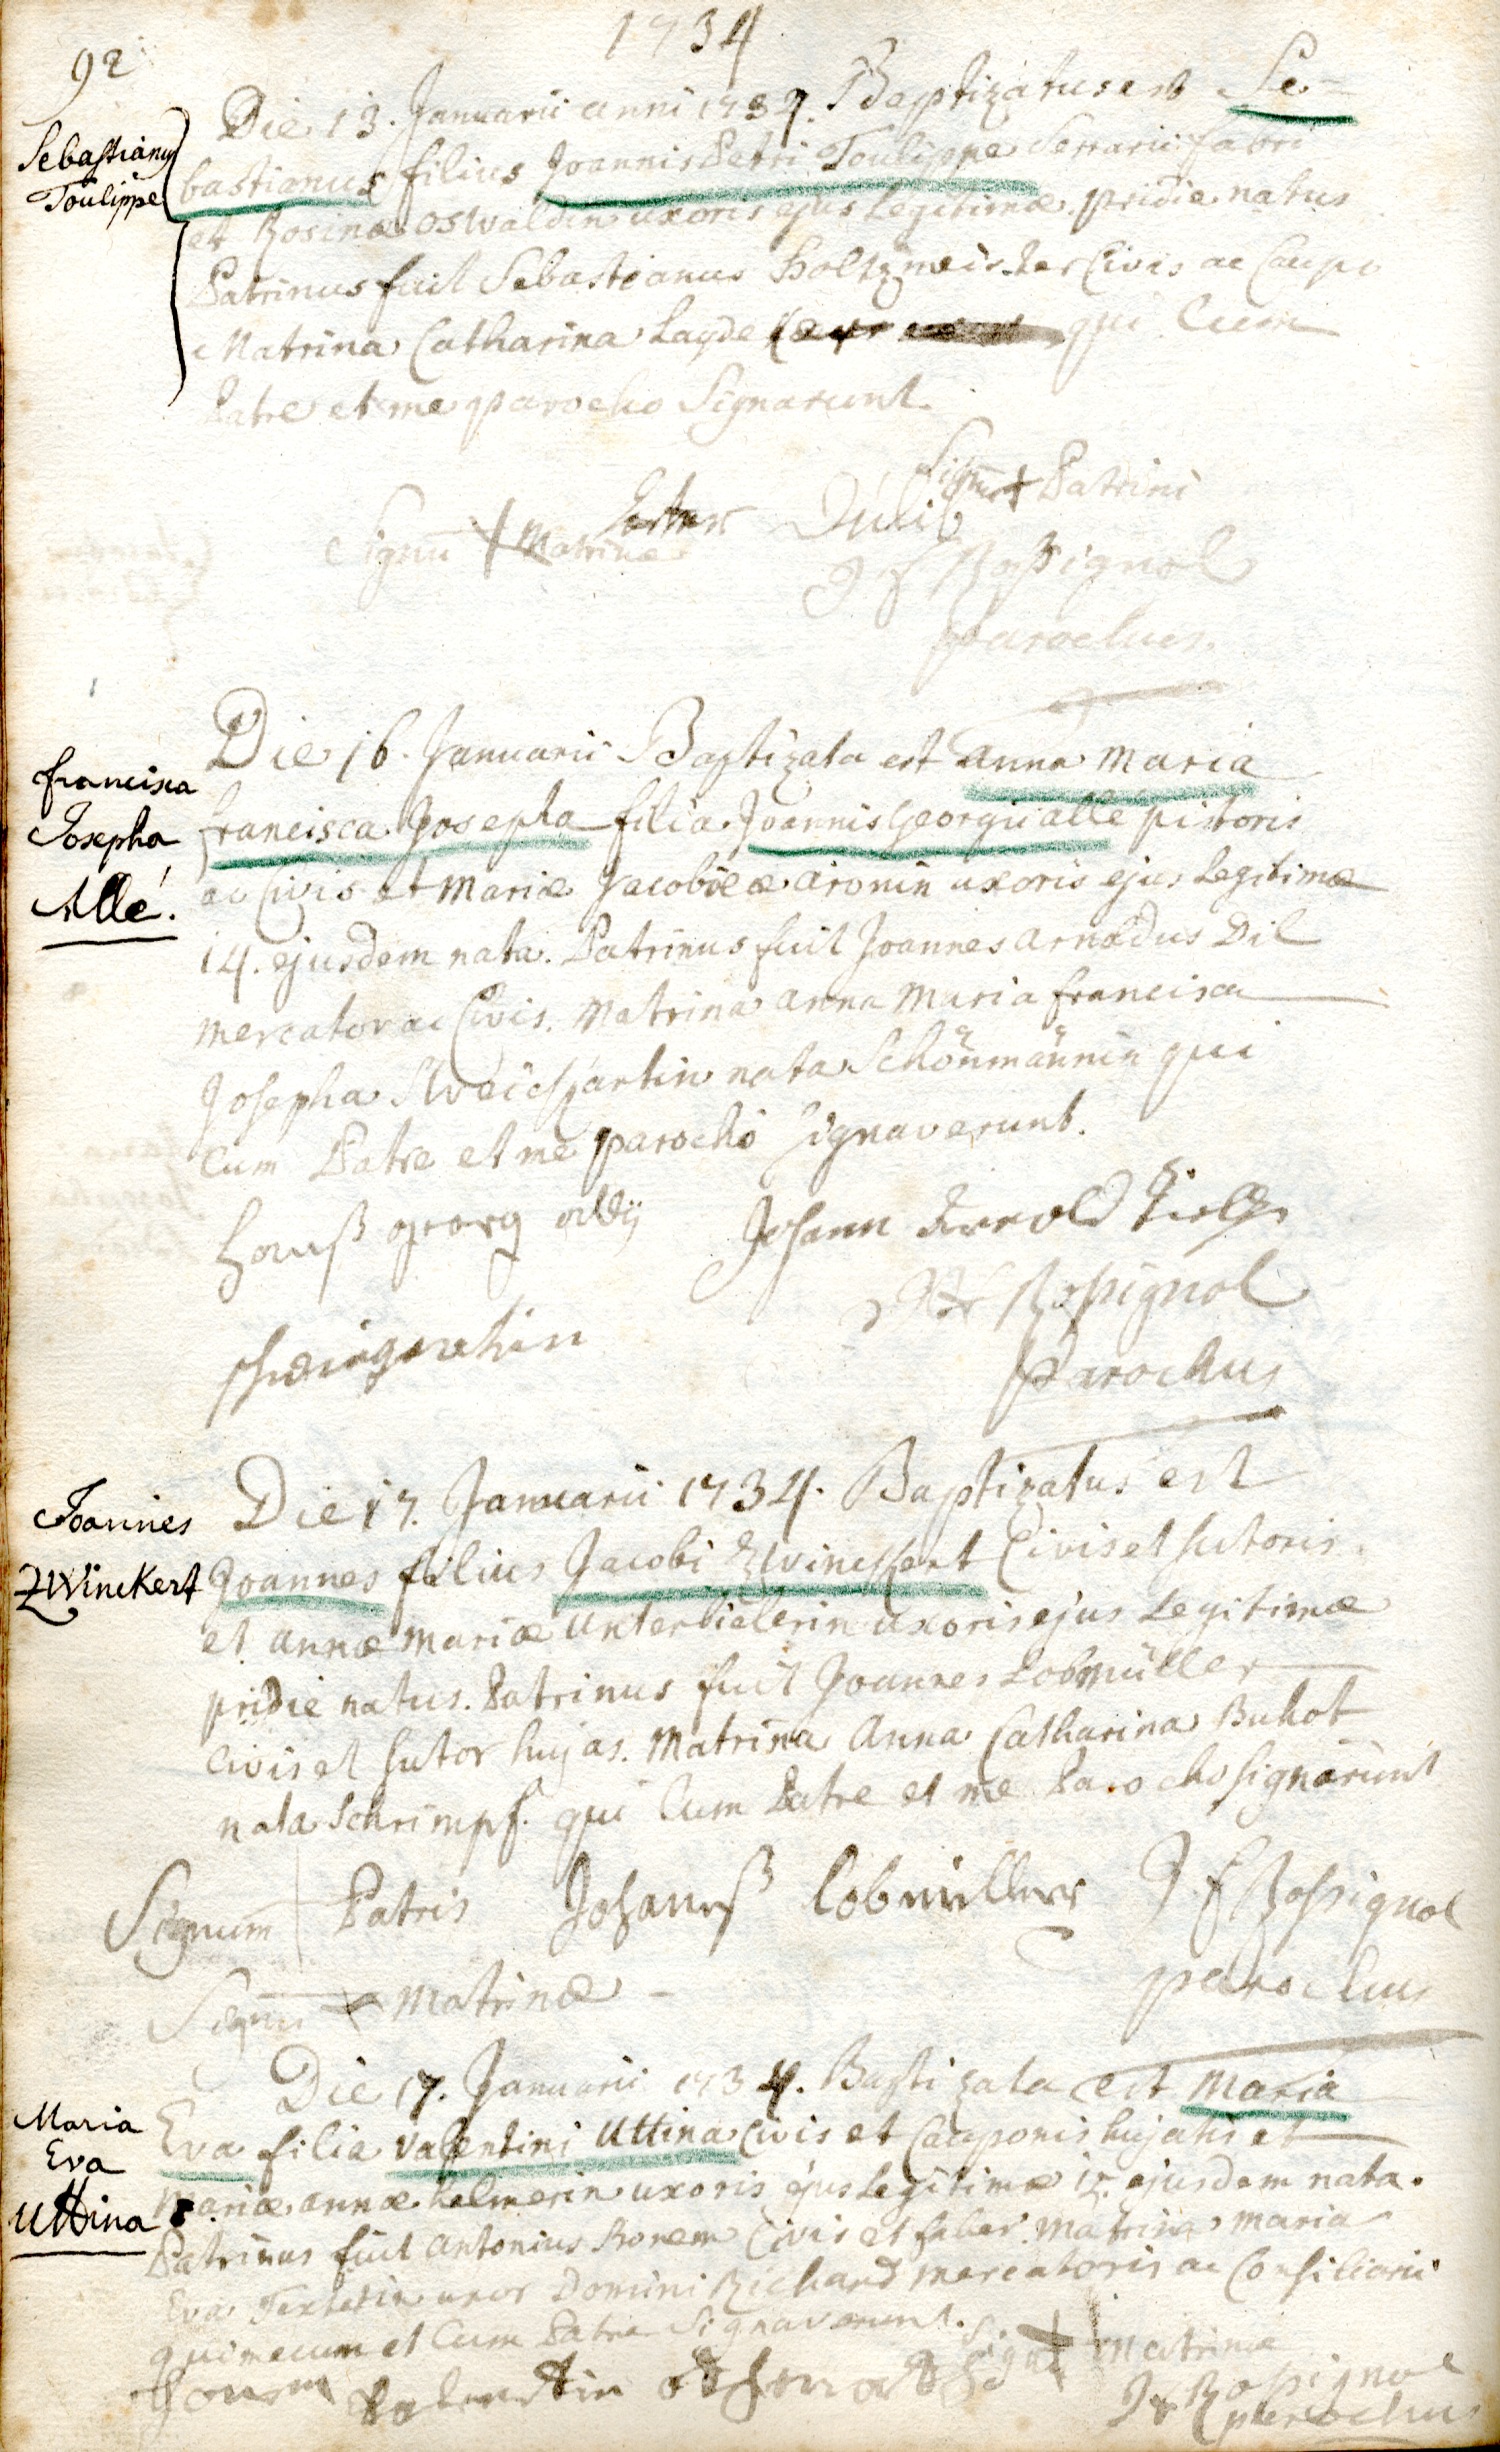 1734
92
Sebastianus
Toulippe
Die 13. Januarii anni 1734. Baptizatus est Se=
bastianus filius Joannis Petri Toulippe Serrarii fabri
et Rosinæ Oswaldin uxoris ejus Legitimæ pridie natus
Patrinus fuit Sebastianus Holtzmeister Civis ac Caupo
Matrina Catharina Layde qui Cum
Patre et me parocho Signarunt.
Signū + Patrini
Signū + Matrinæ
J F Rossignol
parochus.
Francisca
Josepha
Allé.
Die 16. Januarii Baptizata est Anna Maria
Francisca Josepha filia Joannis Georgii Alle pistoris
ac Civis et Mariæ Jacobeæ Aronin uxoris ejus Legitimæ
14. ejusdem nata. Patrinus fuit Joannes Arnoldus Dil
mercator ac Civis. Matrina Anna Maria Francisca
Josepha Sweickartin nata Schönmännin qui
Cum Patre et me parocho Signaverunt.
Hanß georg
Johann Arnold
Rossignol
Parochus
Joannes
Zwinckert
Die 17. Januarii 1734. Baptizatus est
Joannes filius Jacobi Zwinckert Civis et sutoris
et Annæ Mariæ Unterbielerin uxoris ejus Legitimæ
pridie natus. Patrinus fuit Joannes Lobmüller
Civis et sutor hujas. Matrina Anna Catharina Buhot
nata Schrimpf. qui Cum Patre et me Parocho signarunt
Signum Patris Johanneß lobmiller J F Rossignol
Signū + Matrinæ parochus
Maria
Eva
Uttina
Die 17. Januarii 1734. Baptizata est Maria
Eva filia Valentini Uttina Civis et Cauponis hujatis et
Mariæ Annæ Helmerin uxoris ejus Legitimæ ejusdem nata.
Patrinus fuit Antonius Civis et faber Matrina Maria
Eva uxor Domini Richard mercatoris ac Consiliarii
qui mecum et Cum Patre Signaverunt.
Sign + Matrinæ
J F Rossignol
parochus